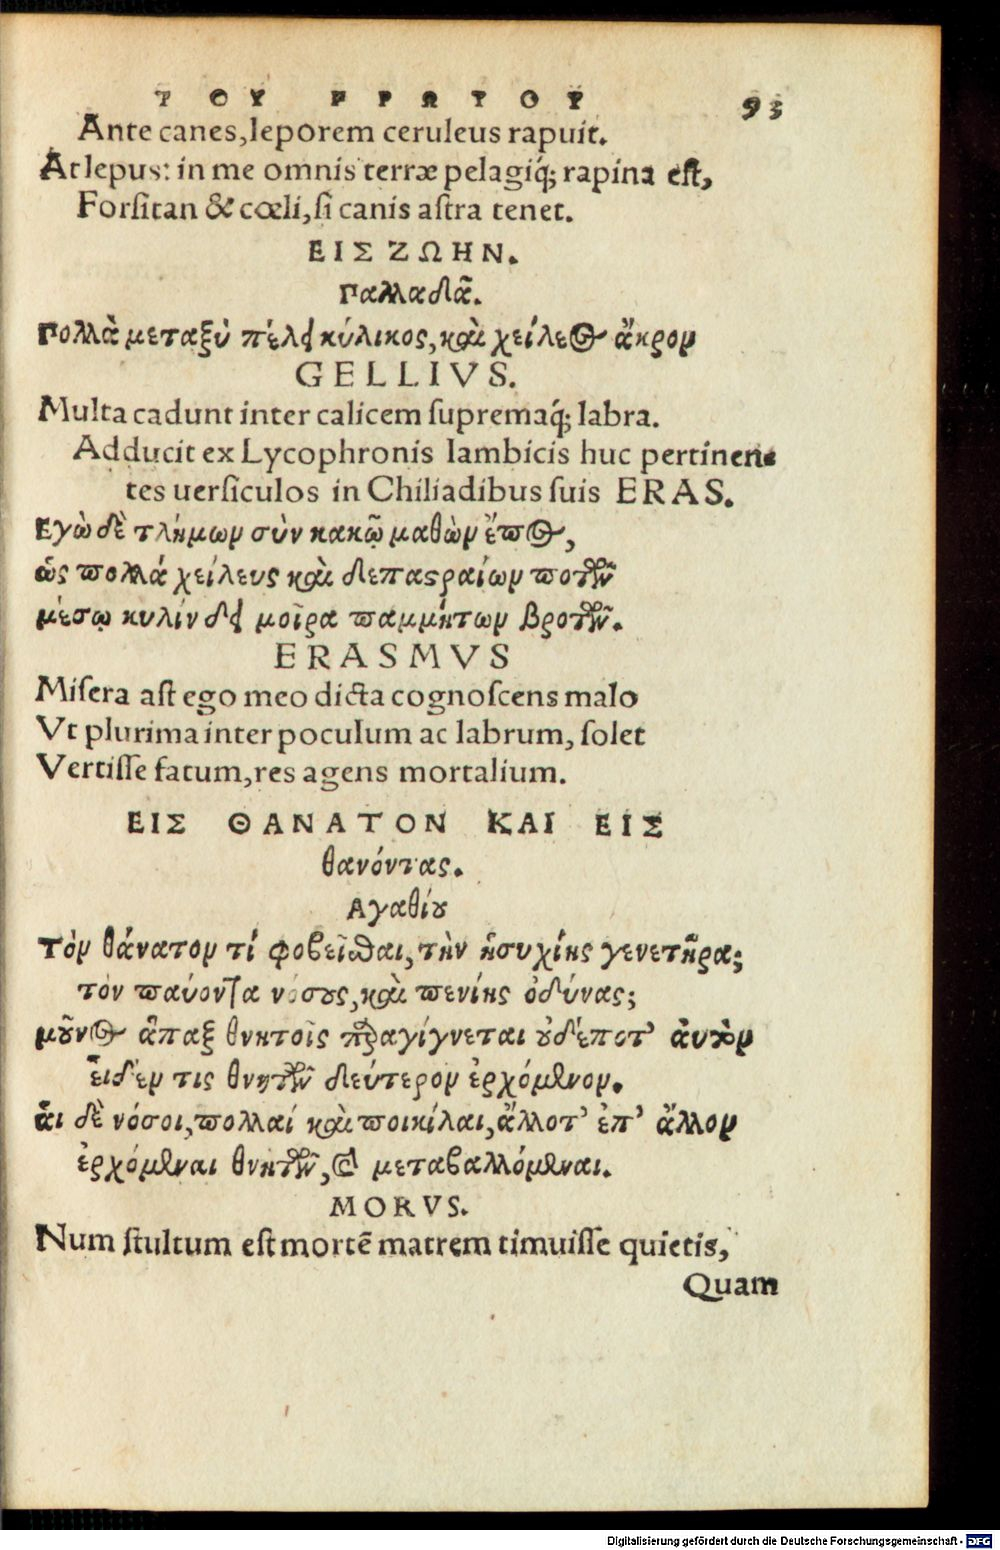 ΤΟΥ ΠΡΩΤΟΥ 93
Ante canes, leporem ceruleus rapuit.
At lepus: in me omnis terræ pelagiq́; rapina est,
Forsitan & cœli, si canis astra tenet.
ΕΙΣ ΖΩΗΝ.
Παλλαδᾶ.
Πολλὰ μεταξὺ πέλει κύλικος, καὶ χείλεος ἄκρου
GELLIVS.
Multa cadunt inter calicem supremaq́; labra.
Adducit ex Lycophronis Iambicis huc pertinen
tes uersiculos in Chiliadibus suis ERAS.
Εγὼ δὲ τλήμων σὺν κακῷ μαθὼν ἔπος,
ὡς πολλά χείλευς καὶ δεπαστραίων ποτῶν
μέσῳ κυλίνδει μοῖρα παμμήτων βροτῶν.
ERASMVS
Misera ast ego meo dicta cognoscens malo
Vt plurima inter poculum ac labrum, solet
Vertisse fatum, res agens mortalium.
ΕΙΣ ΘΑΝΑΤΟΝ ΚΑΙ ΕΙΣ
θανόντας.
Αγαθίου
Τὸν θάνατον τί φοβεῖσθαι, τὴν ἡσυχίης γενετῆρα;
τὸν παύοντα νόσους, καὶ πενίης ὀδύνας;
μοῦνος ἅπαξ θνητοῖς παραγίγνεται οὐδέποτ’ ἀυτὸν
εἶδέν τις θνητῶν δεύτερον ἐρχόμενον.
ἁι δὲ νόσοι, πολλαί καὶ ποικίλαι, ἄλλοτ’ ἐπ’ ἄλλον
ἐρχόμεναι θνητῶν, καὶ μεταβαλλόμεναι.
MORVS.
Num stultum est mortē matrem timuisse quietis,
Quam
Digitalisierung gefördert durch die Deutsche Forschungsgemeinschaft - DFG